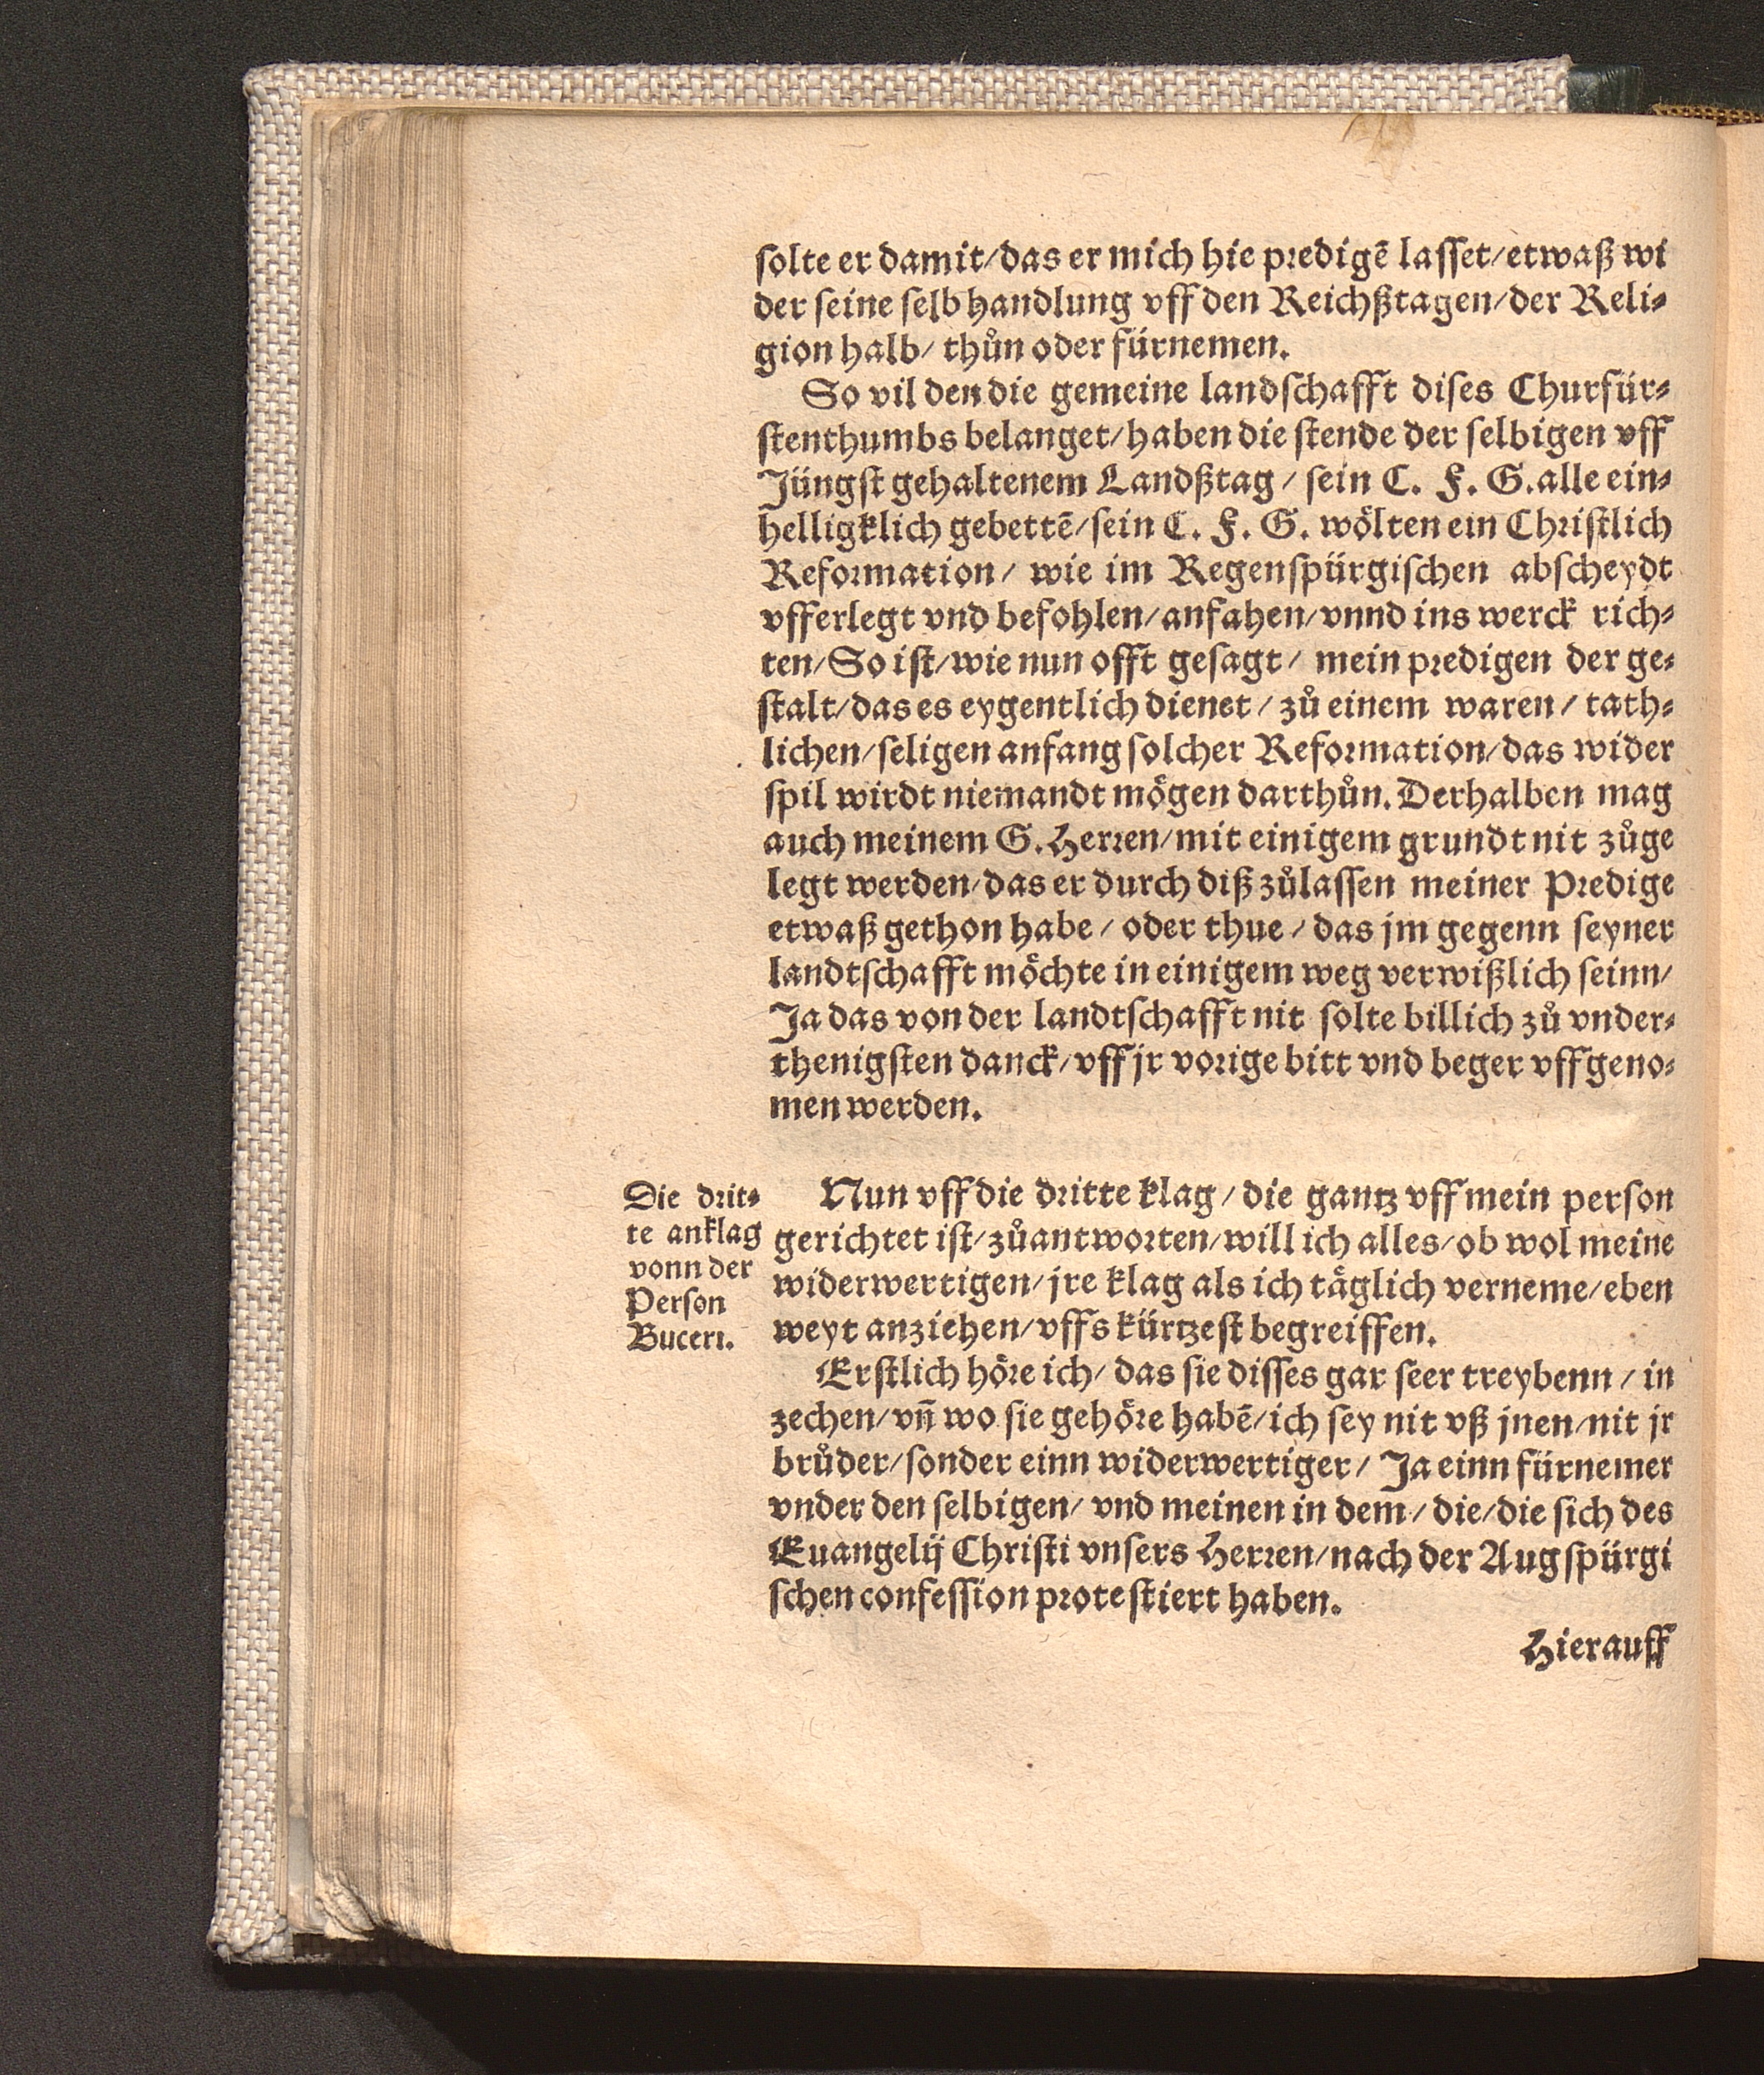 solte er damit/das er mich hie predigē lasset/etwaß wi
der seine selb handlung vff den Reichßtagen/der Reli-
gion halb/ thůn oder fürnemen.
So vil den die gemeine landschafft dises Churfür-
stenthumbs belanget/haben die stende der selbigen vff
Jüngst gehaltenem Landßtag/ sein C. F. G. alle ein-
helligklich gebettē/sein C. F. G. wölten ein Christlich
Reformation/ wie im Regenspürgischen abscheydt
vfferlegt vnd befohlen/anfahen/vnnd ins werck rich-
ten/So ist/wie nun offt gesagt/ mein predigen der ge-
stalt/das es eygentlich dienet/ zů einem waren/ tath-
lichen/seligen anfang solcher Reformation/das wider
spil wirdt niemandt mögen darthůn. Derhalben mag
auch meinem G. Herren/mit einigem grundt nit zůge
legt werden/das er durch diß zůlassen meiner Predige
etwaß gethon habe/ oder thue/ das jm gegenn seyner
landtschafft möchte in einigem weg verwißlich seinn/
Ja das von der landtschafft nit solte billich zů vnder-
thenigsten danck/vff jr vorige bitt vnd beger vffgeno-
men werden.
Die drit-
te anklag
vonn der
Person
Buceri.
Nun vff die dritte klag/ die gantz vff mein person
gerichtet ist/zůantworten/will ich alles/ob wol meine
widerwertigen/jre klag als ich täglich verneme/eben
weyt anziehen/vffs kürtzest begreiffen.
Erstlich höre ich/ das sie disses gar seer treybenn/ in
zechen/vn̄ wo sie gehöre habē/ich sey nit vß jnen/nit jr
brůder/sonder einn widerwertiger/ Ja einn fürnemer
vnder den selbigen/ vnd meinen in dem/ die/die sich des
Euangelij Christi vnsers Herren/nach der Augspürgi
schen confession protestiert haben.
Hierauff